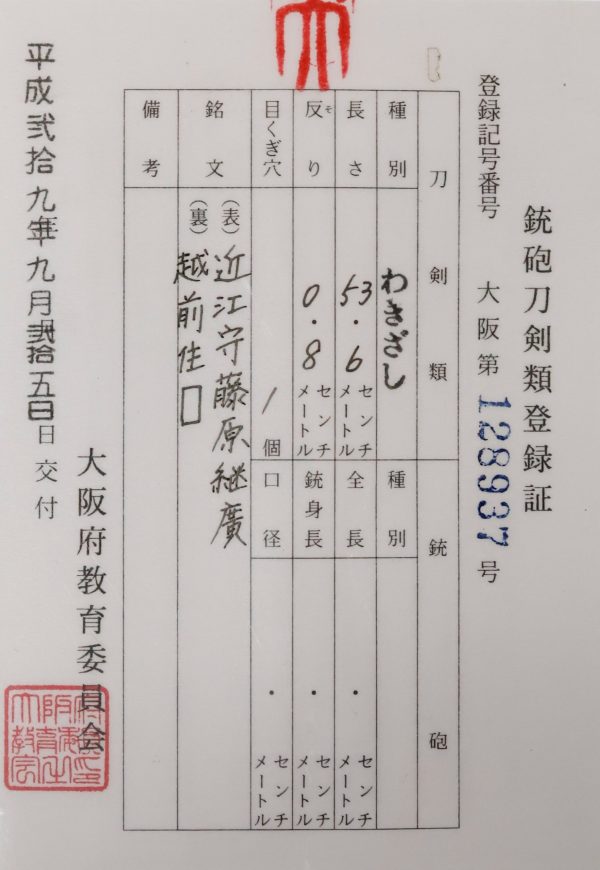 銃砲刀剣類登録証
登録記号番号 大阪第 128937 号
刀剣類 銃砲
種別 わきざし 種別
長さ 53.6 センチメートル 全長 . センチメートル
反り 0.8 センチメートル 銃身長 . センチメートル
ソ
目くぎ穴 1個 口径 . センチメートル
銘文 (表) 近江守藤原継廣
(裏) 越前住□
備考
平成弐拾九年九月弐拾五日日交付
大阪府教育委員会